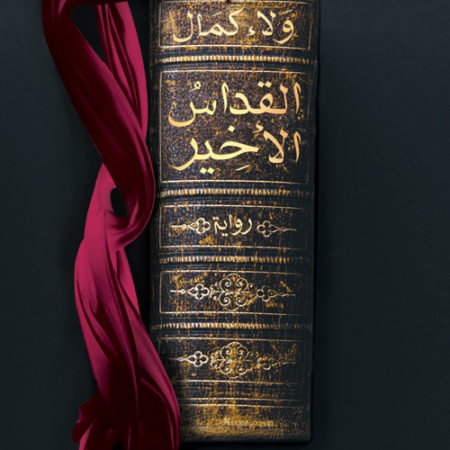 ولاء كمال
القداسُ
الأخِير
رواية